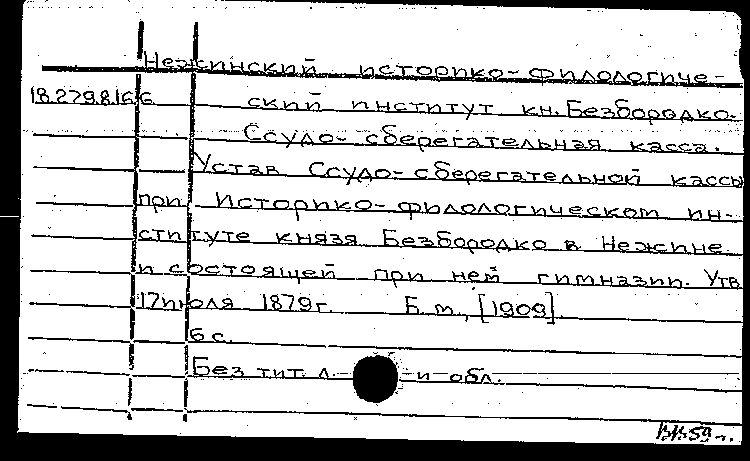 Нежинский историко-филологиче-
18.279.8.166 ский институт кн. Безбородко.
Ссудо-сберегательная касса.
Устав Ссудо-сберегательной кассы
при Историко-филологическом ин-
ституте князя Безбородко в Нежине
и состоящей при нем гимназии. Утв
17 июля 1879г. Б.м., [1909].
6 с.
Без тит. л. и обл.